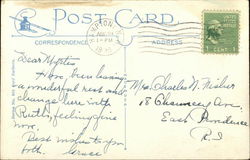 POST CARD
CORRESPONDENCE
1 CENT 1
Dear Myrtie
Have been having
a wonderful rest and
change here with
Ruth, feeling fine
now.
Best wishes to you
both
Mrs. Charles N. Fisher
18 Chauncey Ave.
East Providence
R.I.